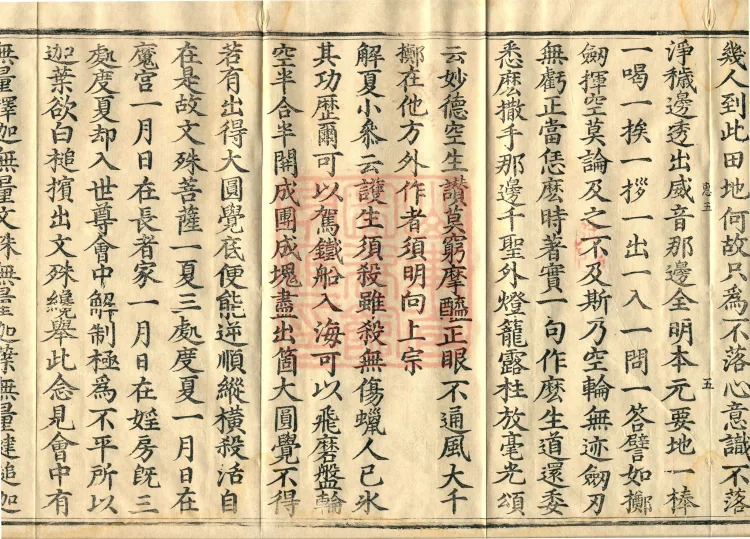 幾人到此田地何故只為不落心意識不落
淨穢邊透出威音那邊全明本元要地一棒
惠五
五
一喝一挨一拶一出一入一問一答譬如擲
劒揮空莫論及之不及斯乃空輪無迹劒刃
無虧正當恁麽時著實一句作麽生道還委
悉麽撒手那邊千聖外燈籠露柱放毫光頌
云妙德空生讃莫窮摩醯正眼不通風大千
擲在他方外作者須明向上宗
解夏小叅云護生須殺雖殺無傷蠟人已氷
其功歷爾可以駕鐵船入海可以飛磨盤輪
空半合半開成團成塊盡出箇大圓覺不得
若有出得大圓覺底便能逆順縱橫殺活自
在是故文殊菩薩一夏三處度夏一月日在
魔宫一月日在長者家一月日在婬房旣三
處度夏却入世尊會中解制極為不平所以
迦葉欲白槌擯出文殊纔舉此念見會中有
無量釋迦無量文殊無量迦葉無量揵追迦